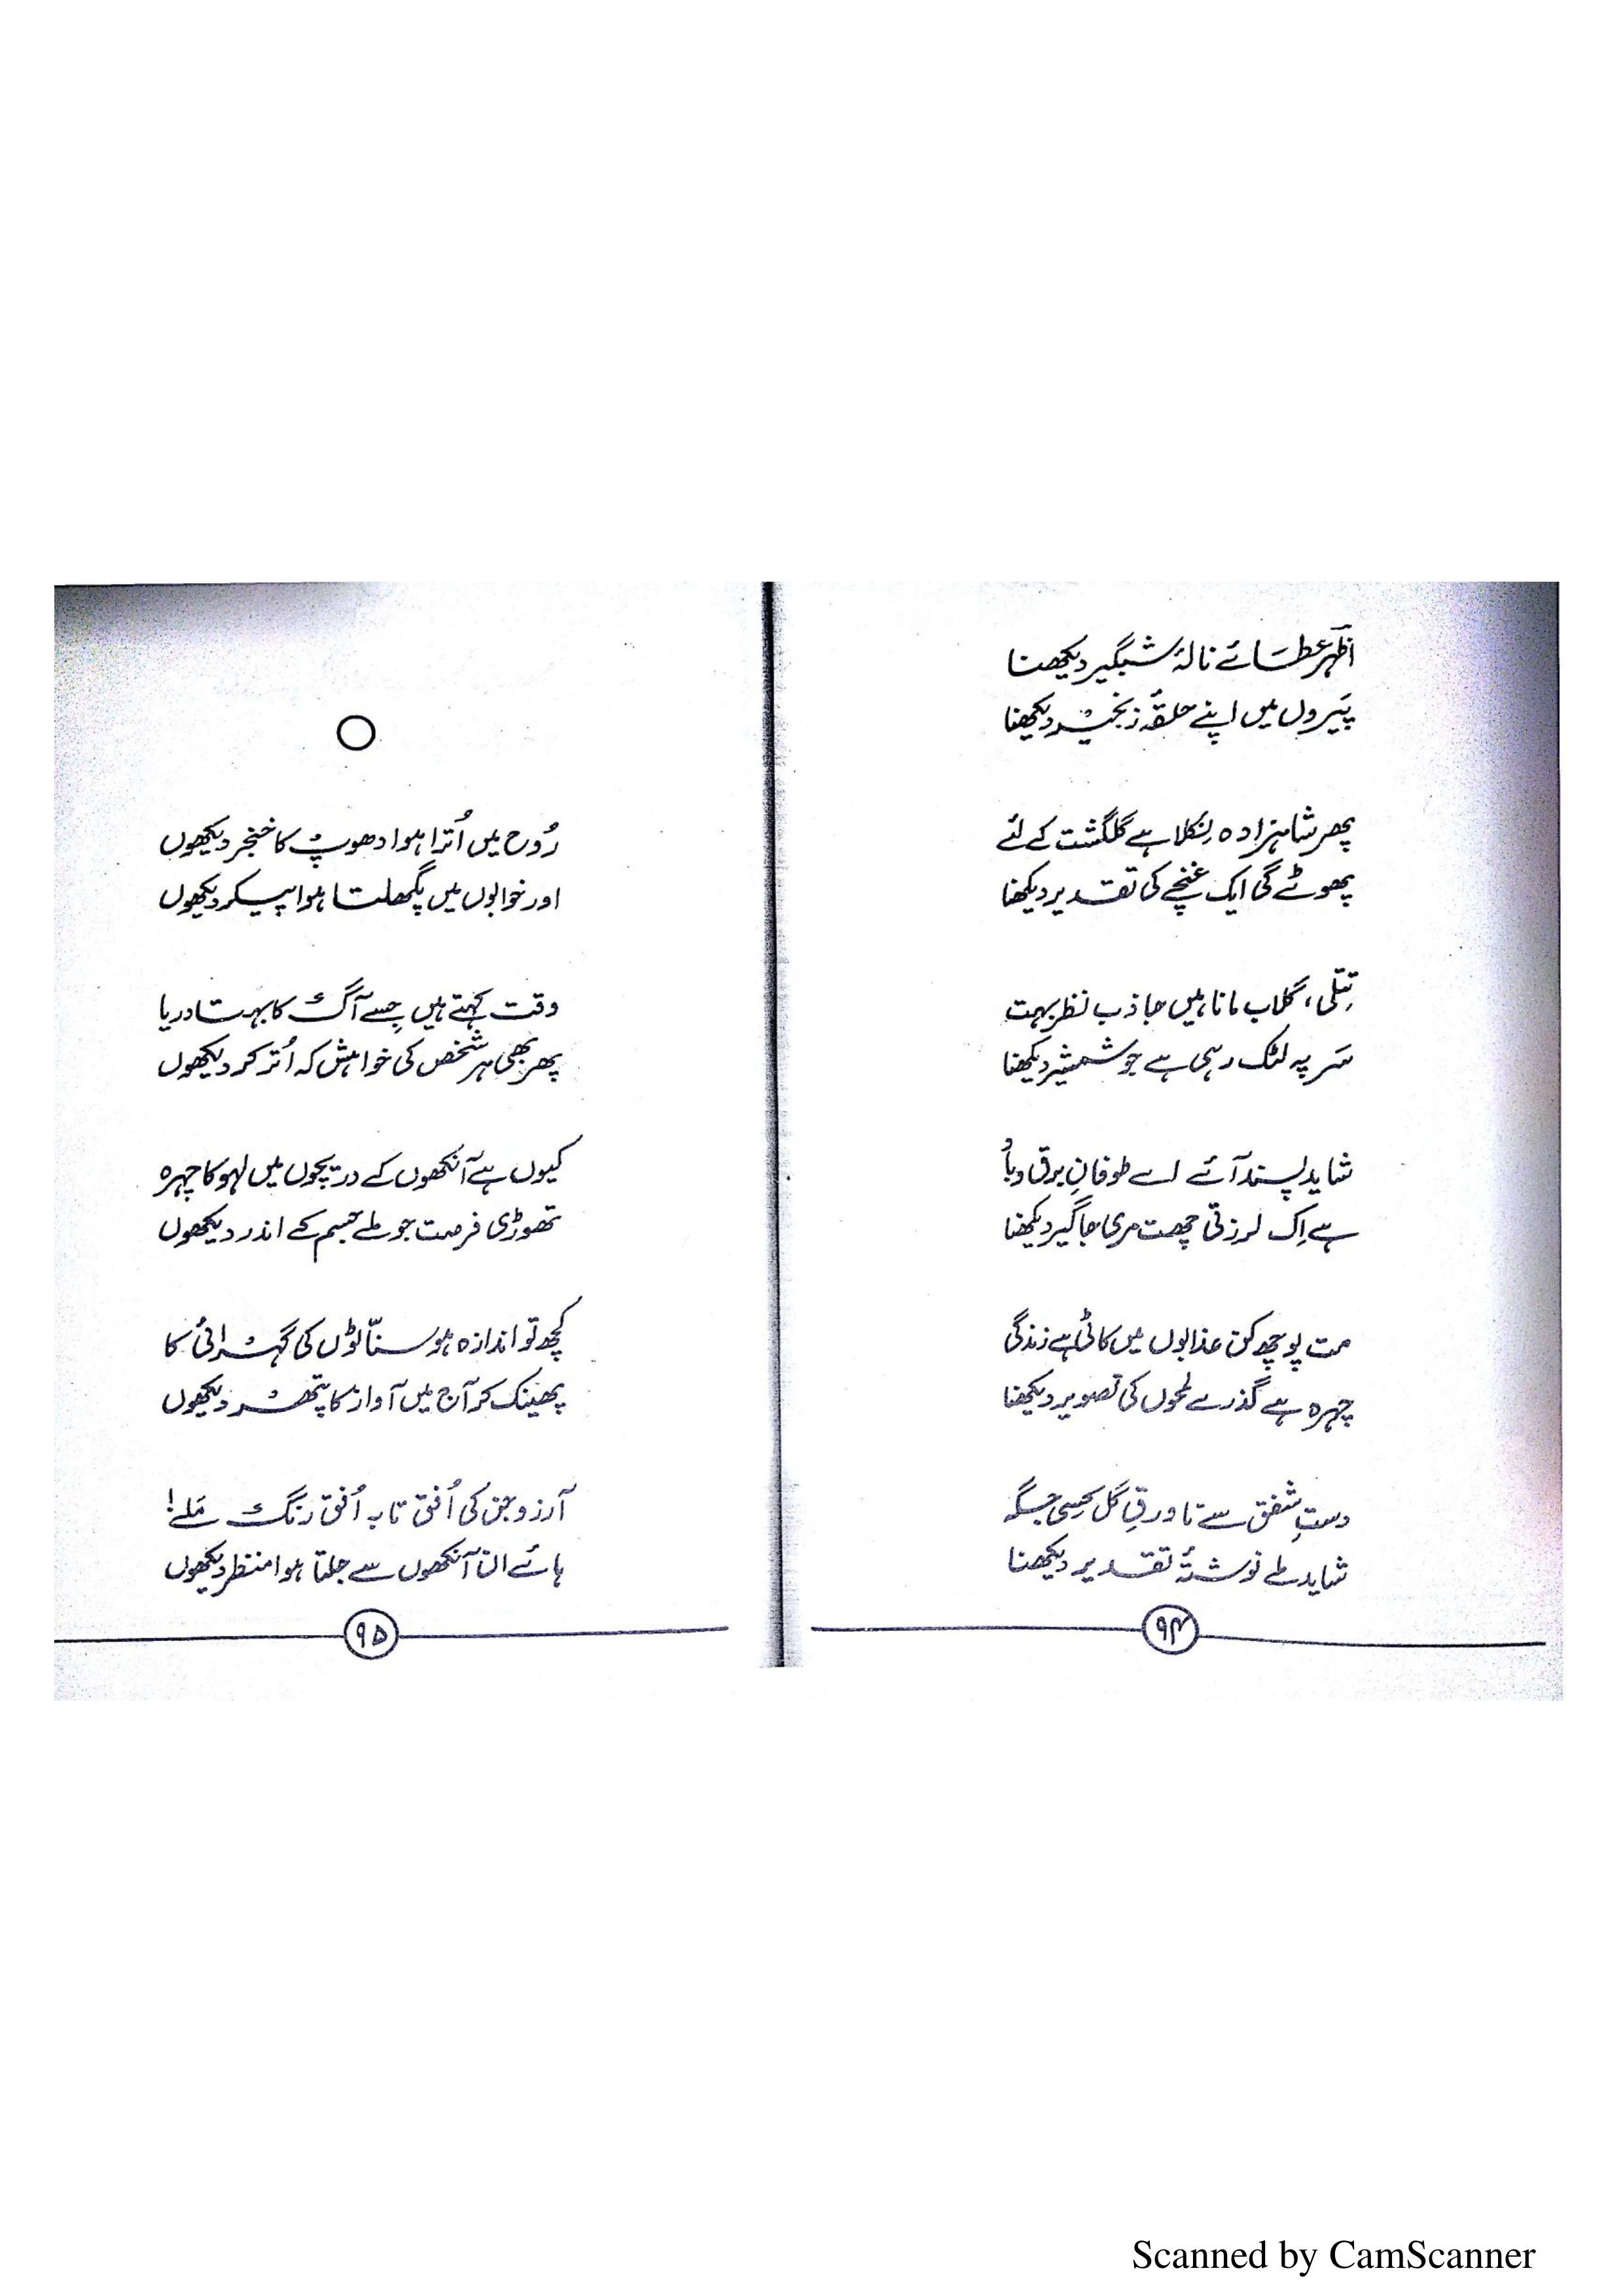 اظہر عطائے نالۂ شبگیر دیکھنا
پَیروں میں اپنے حلقۂ زنجیر دیکھنا
پھر شاہزادہ نِکلا ہے گلگشت کے لئے
پھوٹے گی ایک غنچے کی تقدیر دیکھنا
تِتلی، گلاب مانا ہیں جاذب نظر بہت
سَر پہ لٹک رہی ہے جو شمشیر دیکھنا
شاید پسند آئے اے طوفانِ برق و باد
ہے اِک لرزتی چھت مری جاگیر دیکھنا
مت پوچھ کن عذابوں میں کاٹی ہے زندگی
چہرہ ہے گذرے لمحوں کی تصویر دیکھنا
دستِ شفق سے تا ورقِ گل کسی جگہ
شاید ملے نوشتۂ تقدیر دیکھنا
۹۴
رُوح میں اُترا ہوا دھوپ کا خنجر دیکھوں
اور خوابوں میں پگھلتا ہوا پیکر دیکھوں
وقت کہتے ہیں جِسے آگ کا بہتا دریا
پھر بھی ہر شخص کی خواہش کہ اُتر کر دیکھوں
کیوں ہے آنکھوں کے دریچوں میں لہو کا چہرہ
تھوڑی فرصت جو ملے جسم کے اندر دیکھوں
کچھ تو اندازہ ہو سنّاٹوں کی گہرائی کا
پھینک کر آج میں آواز کا پتھر دیکھوں
آرزو جن کی اُفق تا بہ اُفق رنگ مَلے!
ہائے ان آنکھوں سے جلتا ہوا منظر دیکھوں
۹۵
Scanned by CamScanner